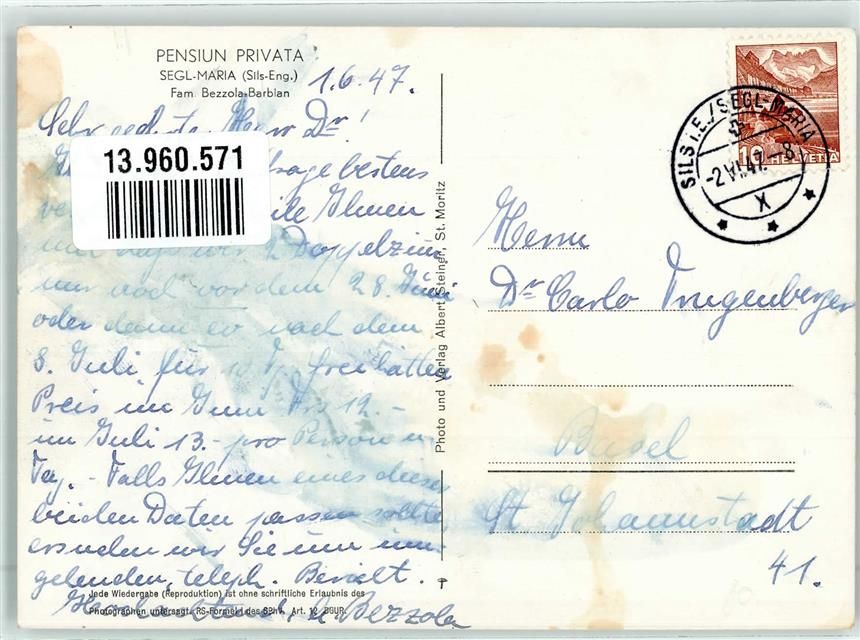 PENSIUN PRIVATA
SEGL-MARIA (Sils-Eng.)
Fam. Bezzola-Barblan
1.6.47.
Sehr geehrter Herr Dr!
13.960.571
frage bestens
teile Ihnen
mit dass wir 2 Doppelzim
nur noch vor dem 28. Juni
oder dann er nach dem
8. Juli für 10 T. frei hätten
Preis im Juni Frs 12.-
im Juli 13.- pro Person u.
Tag. - Falls Ihnen eines dieser
beiden Daten passen sollte
ersuchen wir Sie um um-
gehenden, teleph. Bericht.
Hochachtend, Bezzola
Jede Wiedergabe (Reproduktion) ist ohne schriftliche Erlaubnis des
Photographen untersagt. RS-Formel des SPhV. Art. 12 BGUR.
Photo und Verlag Albert Steiner, St. Moritz
10 HELVETIA
SILS i.E./SEGL-MARIA
-2.VI.47.-8
X
Herrn
Dr Carlo Trugenberger
Basel
St Johannstadt
41.